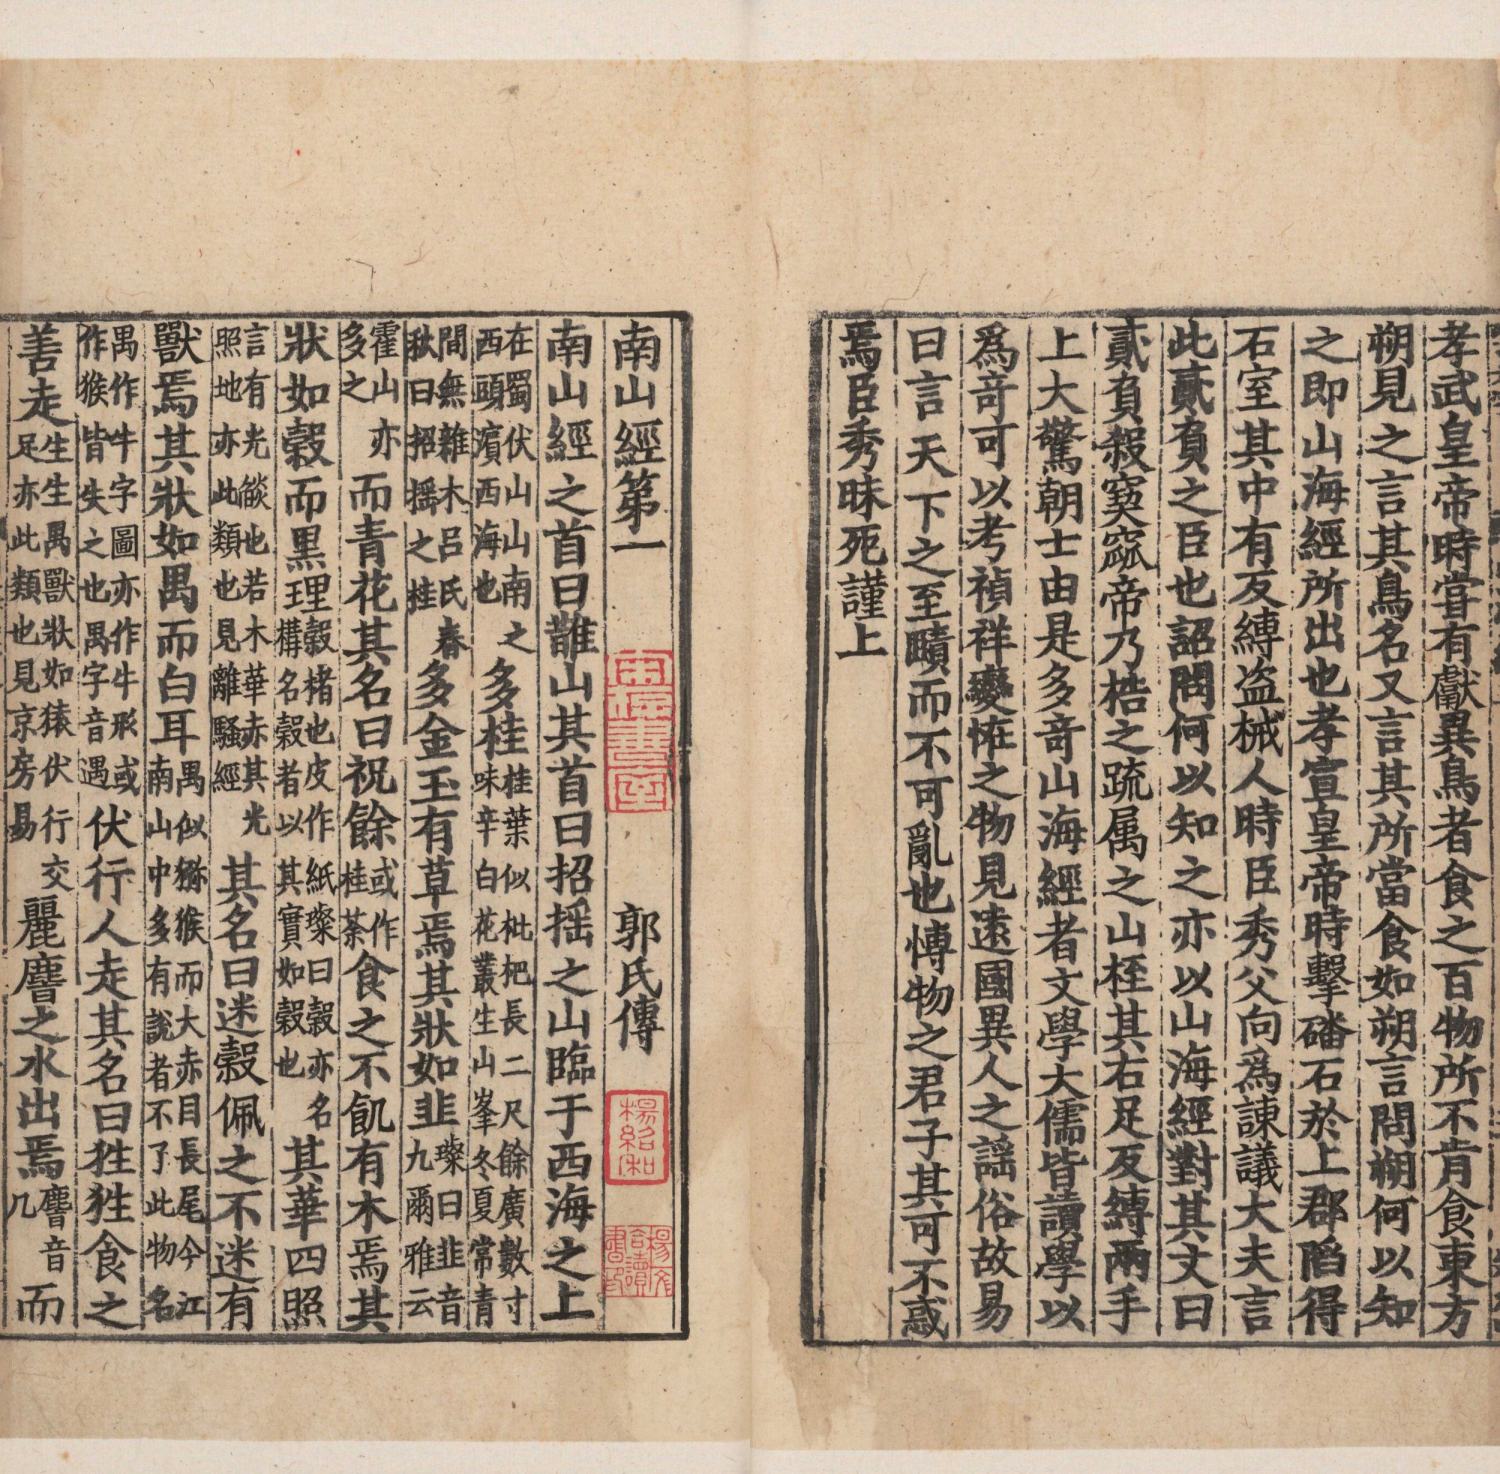 孝武皇帝時甞有獻異鳥者食之百物所不肯食東方
朔見之言其鳥名又言其所當食如朔言問朔何以知
之即山海經所出也孝宣皇帝時擊磻石於上郡陷得
石室其中有反縛盗械人時臣秀父向爲諫議大夫言
此貳負之臣也詔問何以知之亦以山海經對其文曰
貳負殺窫窳帝乃梏之疏属之山桎其右足反縛兩手
上大驚朝士由是多竒山海經者文學大儒皆讀學以
爲竒可以考禎祥變恠之物見逺國異人之謡俗故易
曰言天下之至賾而不可亂也愽物之君子其可不惑
焉臣秀昧死謹上
南山經第一 郭氏傳
宋存書室
楊紹和
南山經之首曰䧿山其首曰招揺之山臨于西海之上
在蜀伏山山南之西頭濵西海也多桂桂葉似枇杷長二尺餘廣數寸味辛白花叢生山峯冬夏常青
間無雜木呂氏春秋曰招揺之桂多金玉有草焉其狀如韭璨曰韭音九爾雅云
霍山亦多之而青花其名曰祝餘或作桂荼食之不飢有木焉其
狀如榖而黒理榖楮也皮作紙璨曰榖亦名構名榖者以其實如榖也其華四照
言有光燄也若木華赤其光照地亦此類也見離騷經其名曰迷榖佩之不迷有
獸焉其狀如禺而白耳禺似獼猴而大赤目長尾今江南山中多有說者不了此物名
禺作牛字圖亦作牛形或作猴皆失之也禺字音遇伏行人走其名曰狌狌食之
善走生生禺獸狀如猿伏行交足亦此類也見京房易麗𪊨之水出焉𪊨音几而